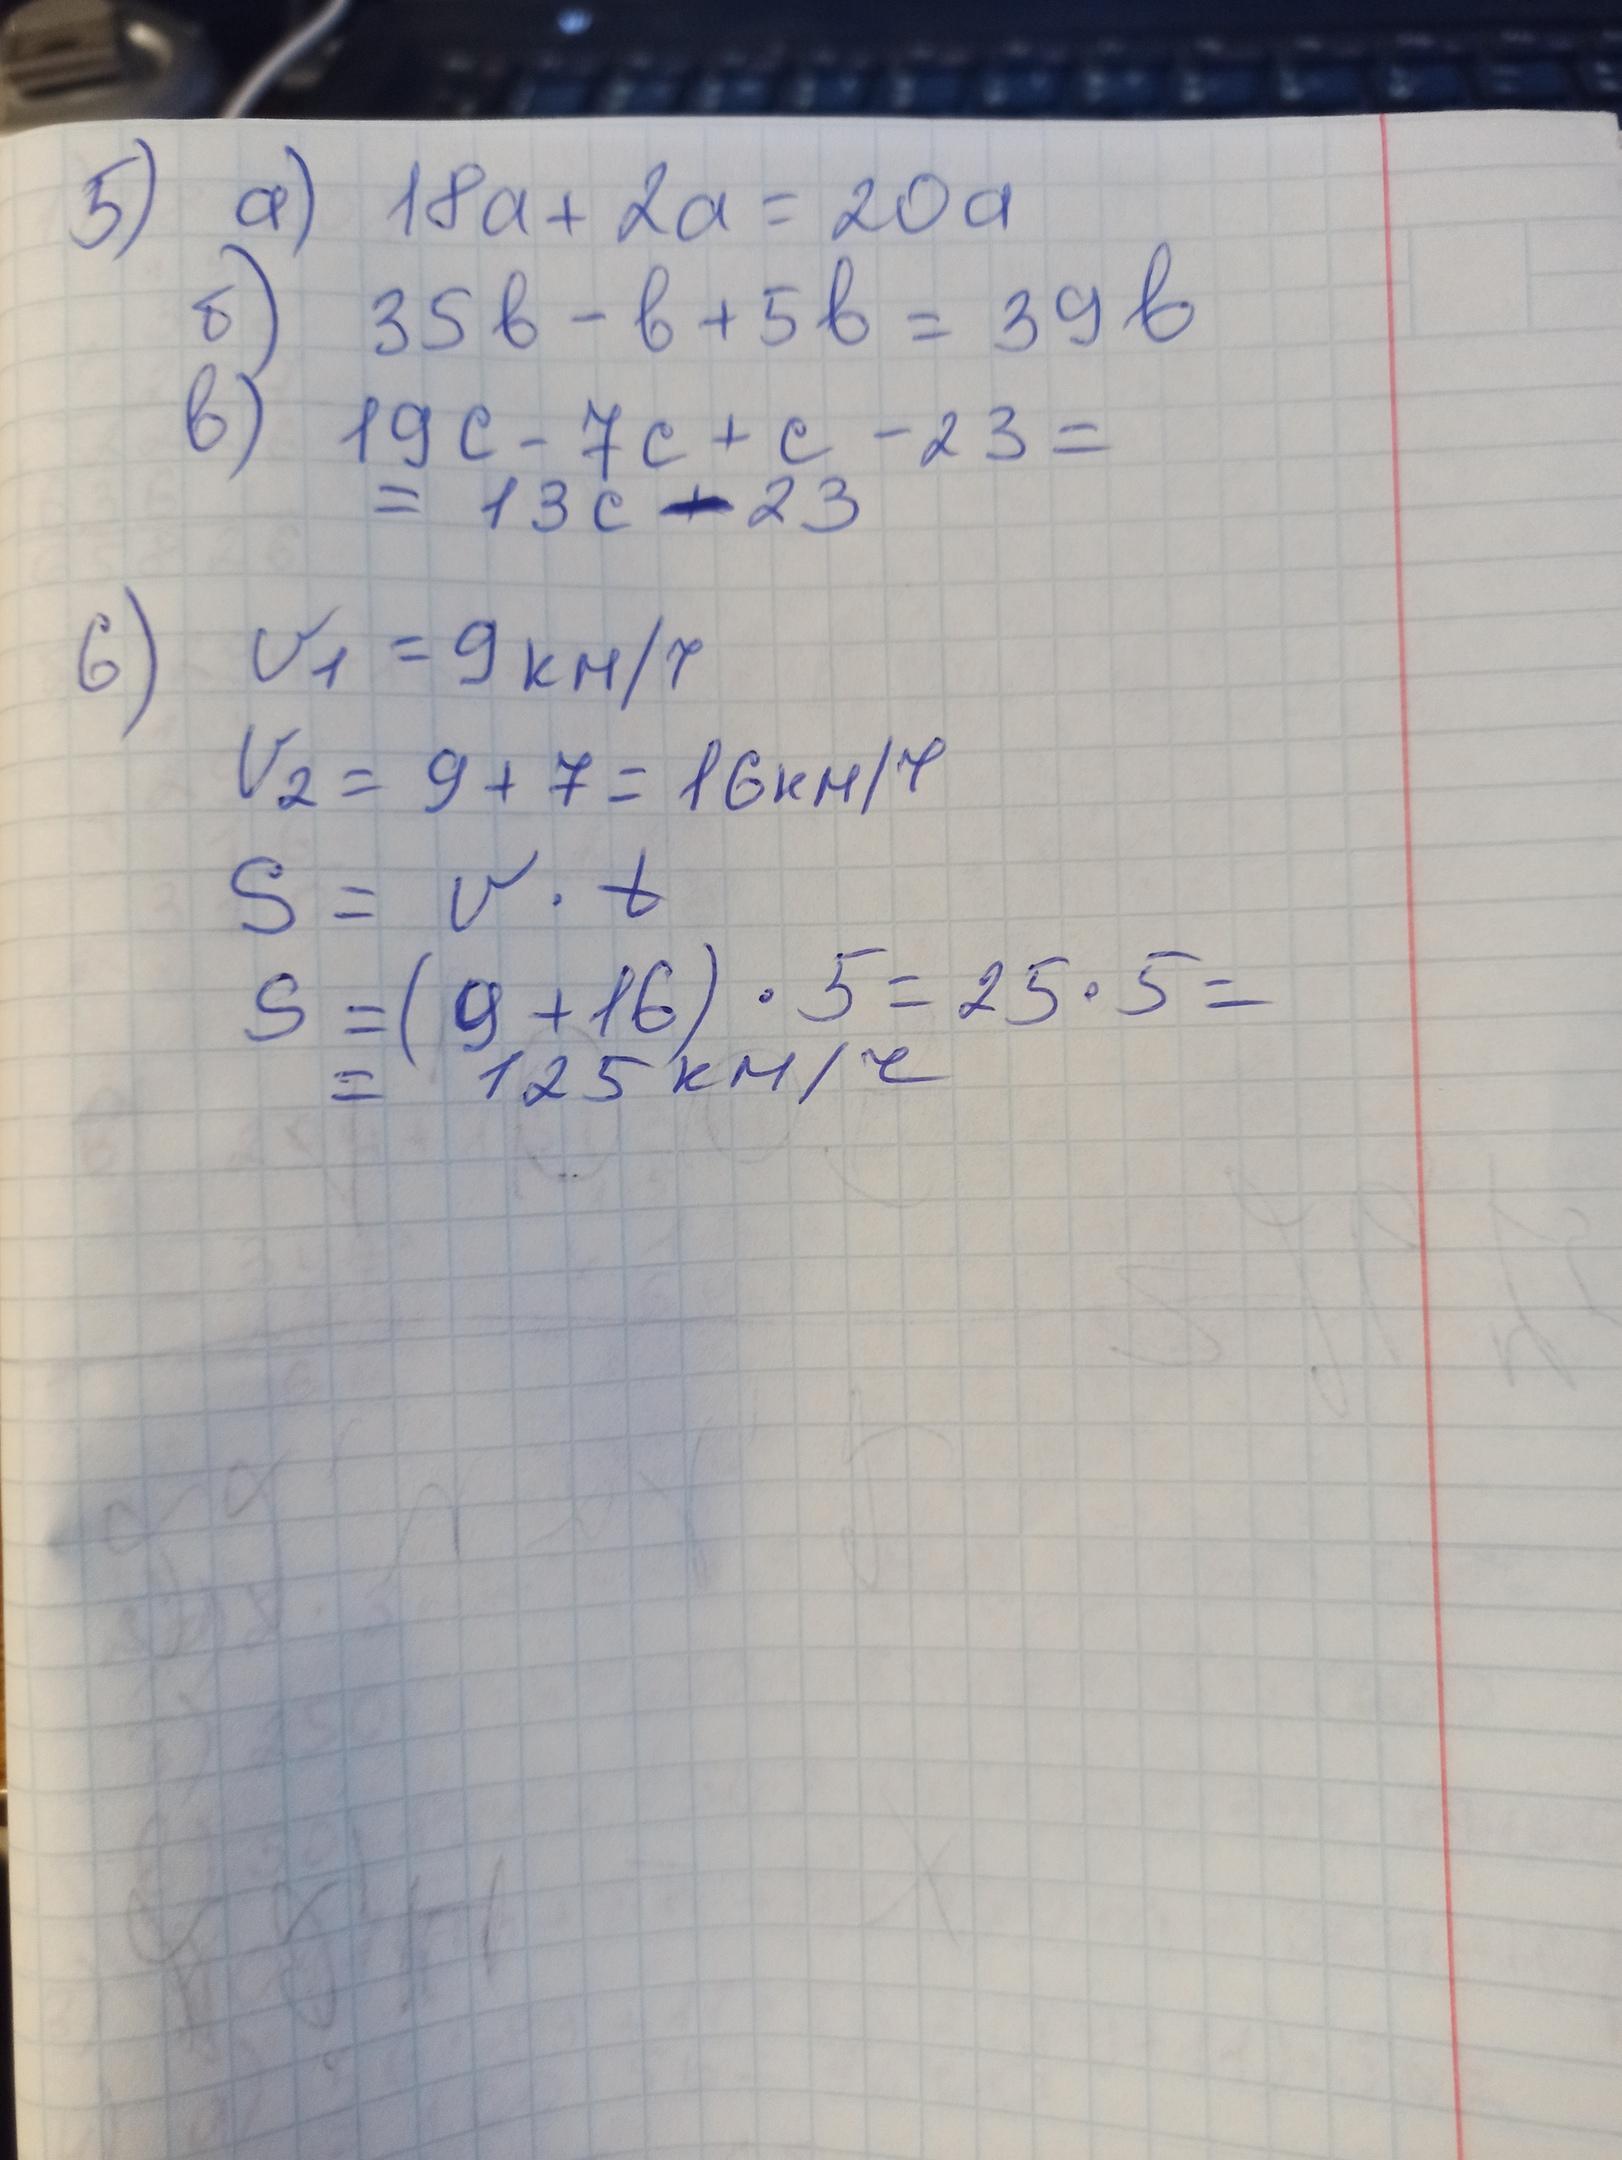 5) а) 18a + 2a = 20a
б) 35b - b + 5b = 39b
в) 19c - 7c + c - 23 =
= 13c - 23
6) v1 = 9 км/ч
v2 = 9 + 7 = 16 км/ч
S = v · t
S = (9 + 16) · 5 = 25 · 5 =
= 125 км/ч